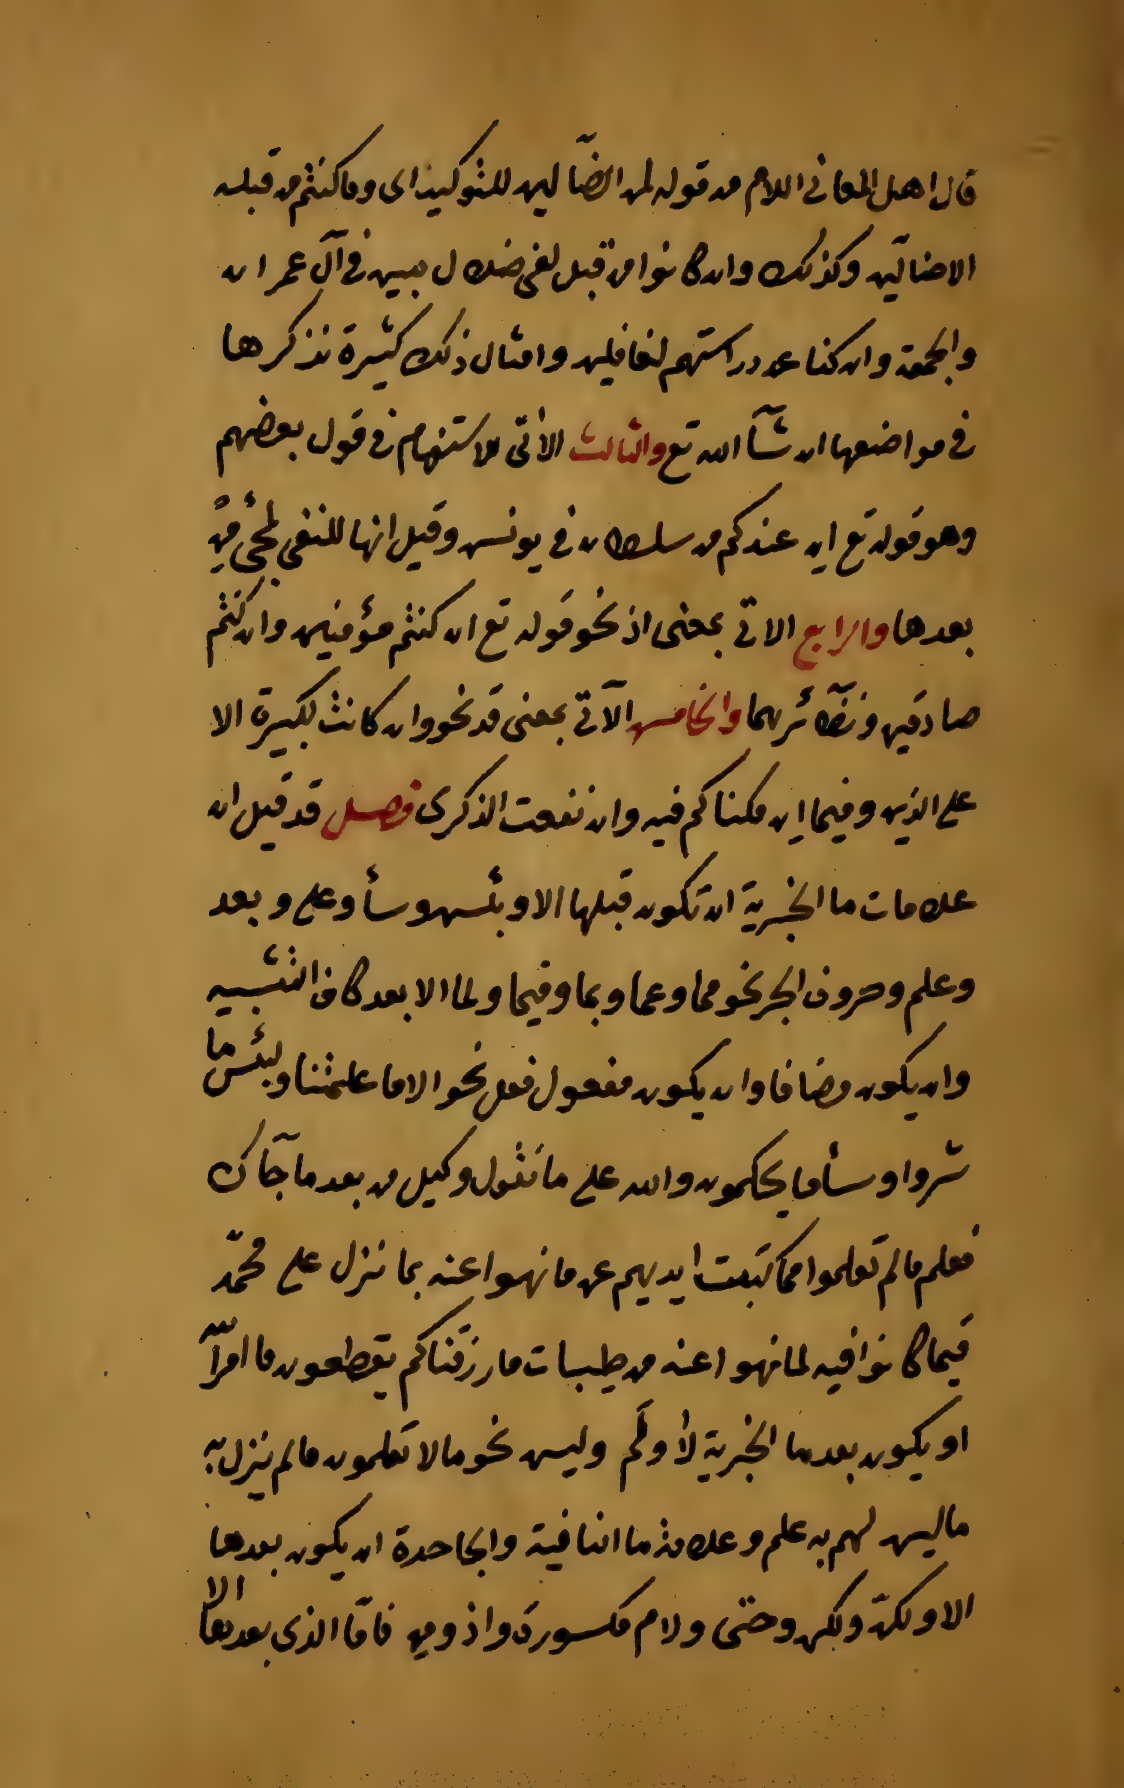 قال اهل المعانى اللام من قوله لمن الضآلين للتوكيد اى وما كنتم من قبله
الا ضالّين وكذلك وان كانوا من قبل لفى ضلال مبين فى آل عمران
والجمعة وان كنا عن دراستهم لغافلين وامثال ذلك كثيرة نذكرها
فى مواضعها ان شآ الله تع والثالث الاتى للاستفهام فى قول بعضهم
وهو قوله تع ان عندكم من سلطان فى يونس وقيل انها للنفى لمجئ مِنْ
بعدها والرابع الاتى بمعنى اذ نحو قوله تع ان كنتم مؤمنين وان كنتم
صادقين ونظآئرهما والخامس الآتى بمعنى قد نحو وان كانت لكبيرة الا
على الذين وفيما ان مكناكم فيه وان نفعت الذكرى فصل قد قيل ان
علامات ما الخبرية ان تكون قبلها الا وبئس وسأ وعلى وبعد
وعلم وحروف الجر نحو مما وعما وبما وفيما ولما الا بعد كاف التشبيه
وان يكون مضافا وان يكون مفعول فعل نحو الا ما علمتنا ولبئس ما
شروا وسأ ما يحكمون والله على ما نقول وكيل من بعد ما جآك
فعلم ما لم تعلموا مما كتبت ايديهم عن ما نهوا عنه بما نزل على محمّد
فيما كانوا فيه لما نهوا عنه من طيبات ما رزقناكم يقطعون ما امر الله
او يكون بعد ما الخبرية لا ولم وليس نحو ما لا تعلمون ما لم ينزل به
ما ليس لهم به علم وعلامة ما النافية والجاحدة ان يكون بعدها
الا ولكنّ ولكن وحتى ولام مكسورة واذ ومن فامّا الذى بعدها الا